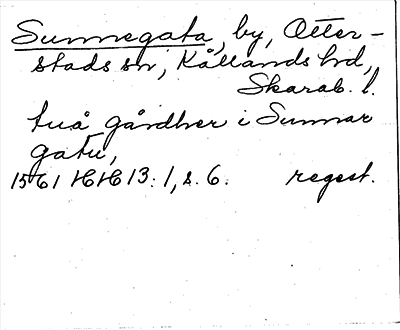 Sunnegata, by, Otter-
stads sn, Kållands hd,
Skarab. l.
tuå gårdher i Sunnar
gatu,
1561 HH 13:1, s. 6. regest.